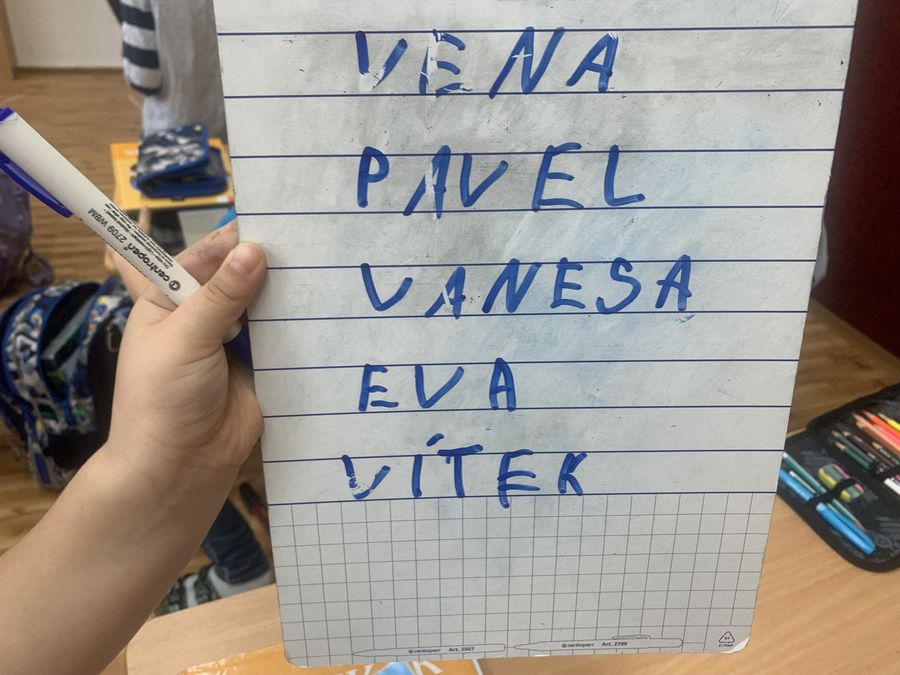 VENA
PAVEL
VANESA
EVA
VÍTEK
centropen 2709 WBM
centropen Art. 2507
centropen Art. 2709